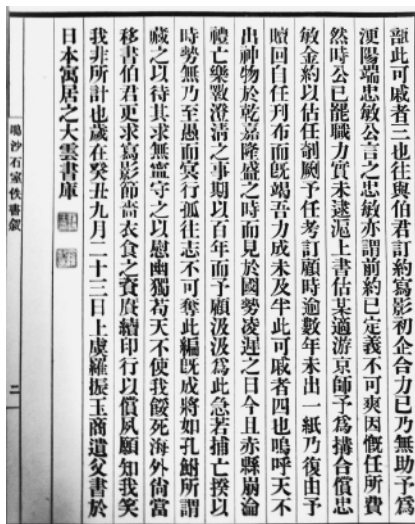 瓻此可戚者三也往與伯君訂約寫影初企合力已乃無助予爲
浭陽端忠敏公言之忠敏亦謂前約已定義不可爽因慨任所費
然時公已罷職力實未逮滬上書估某適游京師予爲搆合償忠
敏金約以估任剞劂予任考訂顧時逾數年未出一紙乃復由予
贖回自任刊布而既竭吾力成未及半此可戚者四也嗚呼天不
出神物於乾嘉隆盛之時而見於國勢凌遲之日今且赤縣崩淪
禮亡樂斁澄清之事期以百年而予顧汲汲爲此急若捕亡揆以
時勢無乃至愚而冥行孤往志不可奪此編既成將如孔鮒所謂
藏之以待其求無寧守之以慰幽獨苟天不使我餒死海外尙當
移書伯君更求寫影節嗇衣食之資賡續印行以償夙願知我笑
我非所計也歲在癸丑九月二十三日上虞羅振玉商遺父書於
日本寓居之大雲書庫
鳴沙石室佚書敘
二